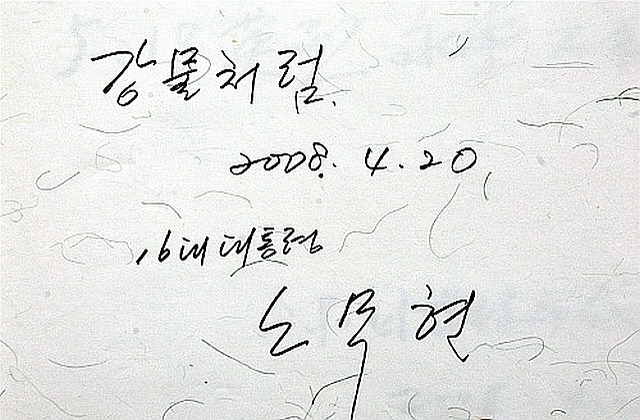 강물처럼.
2008. 4. 20.
16대 대통령
노무현